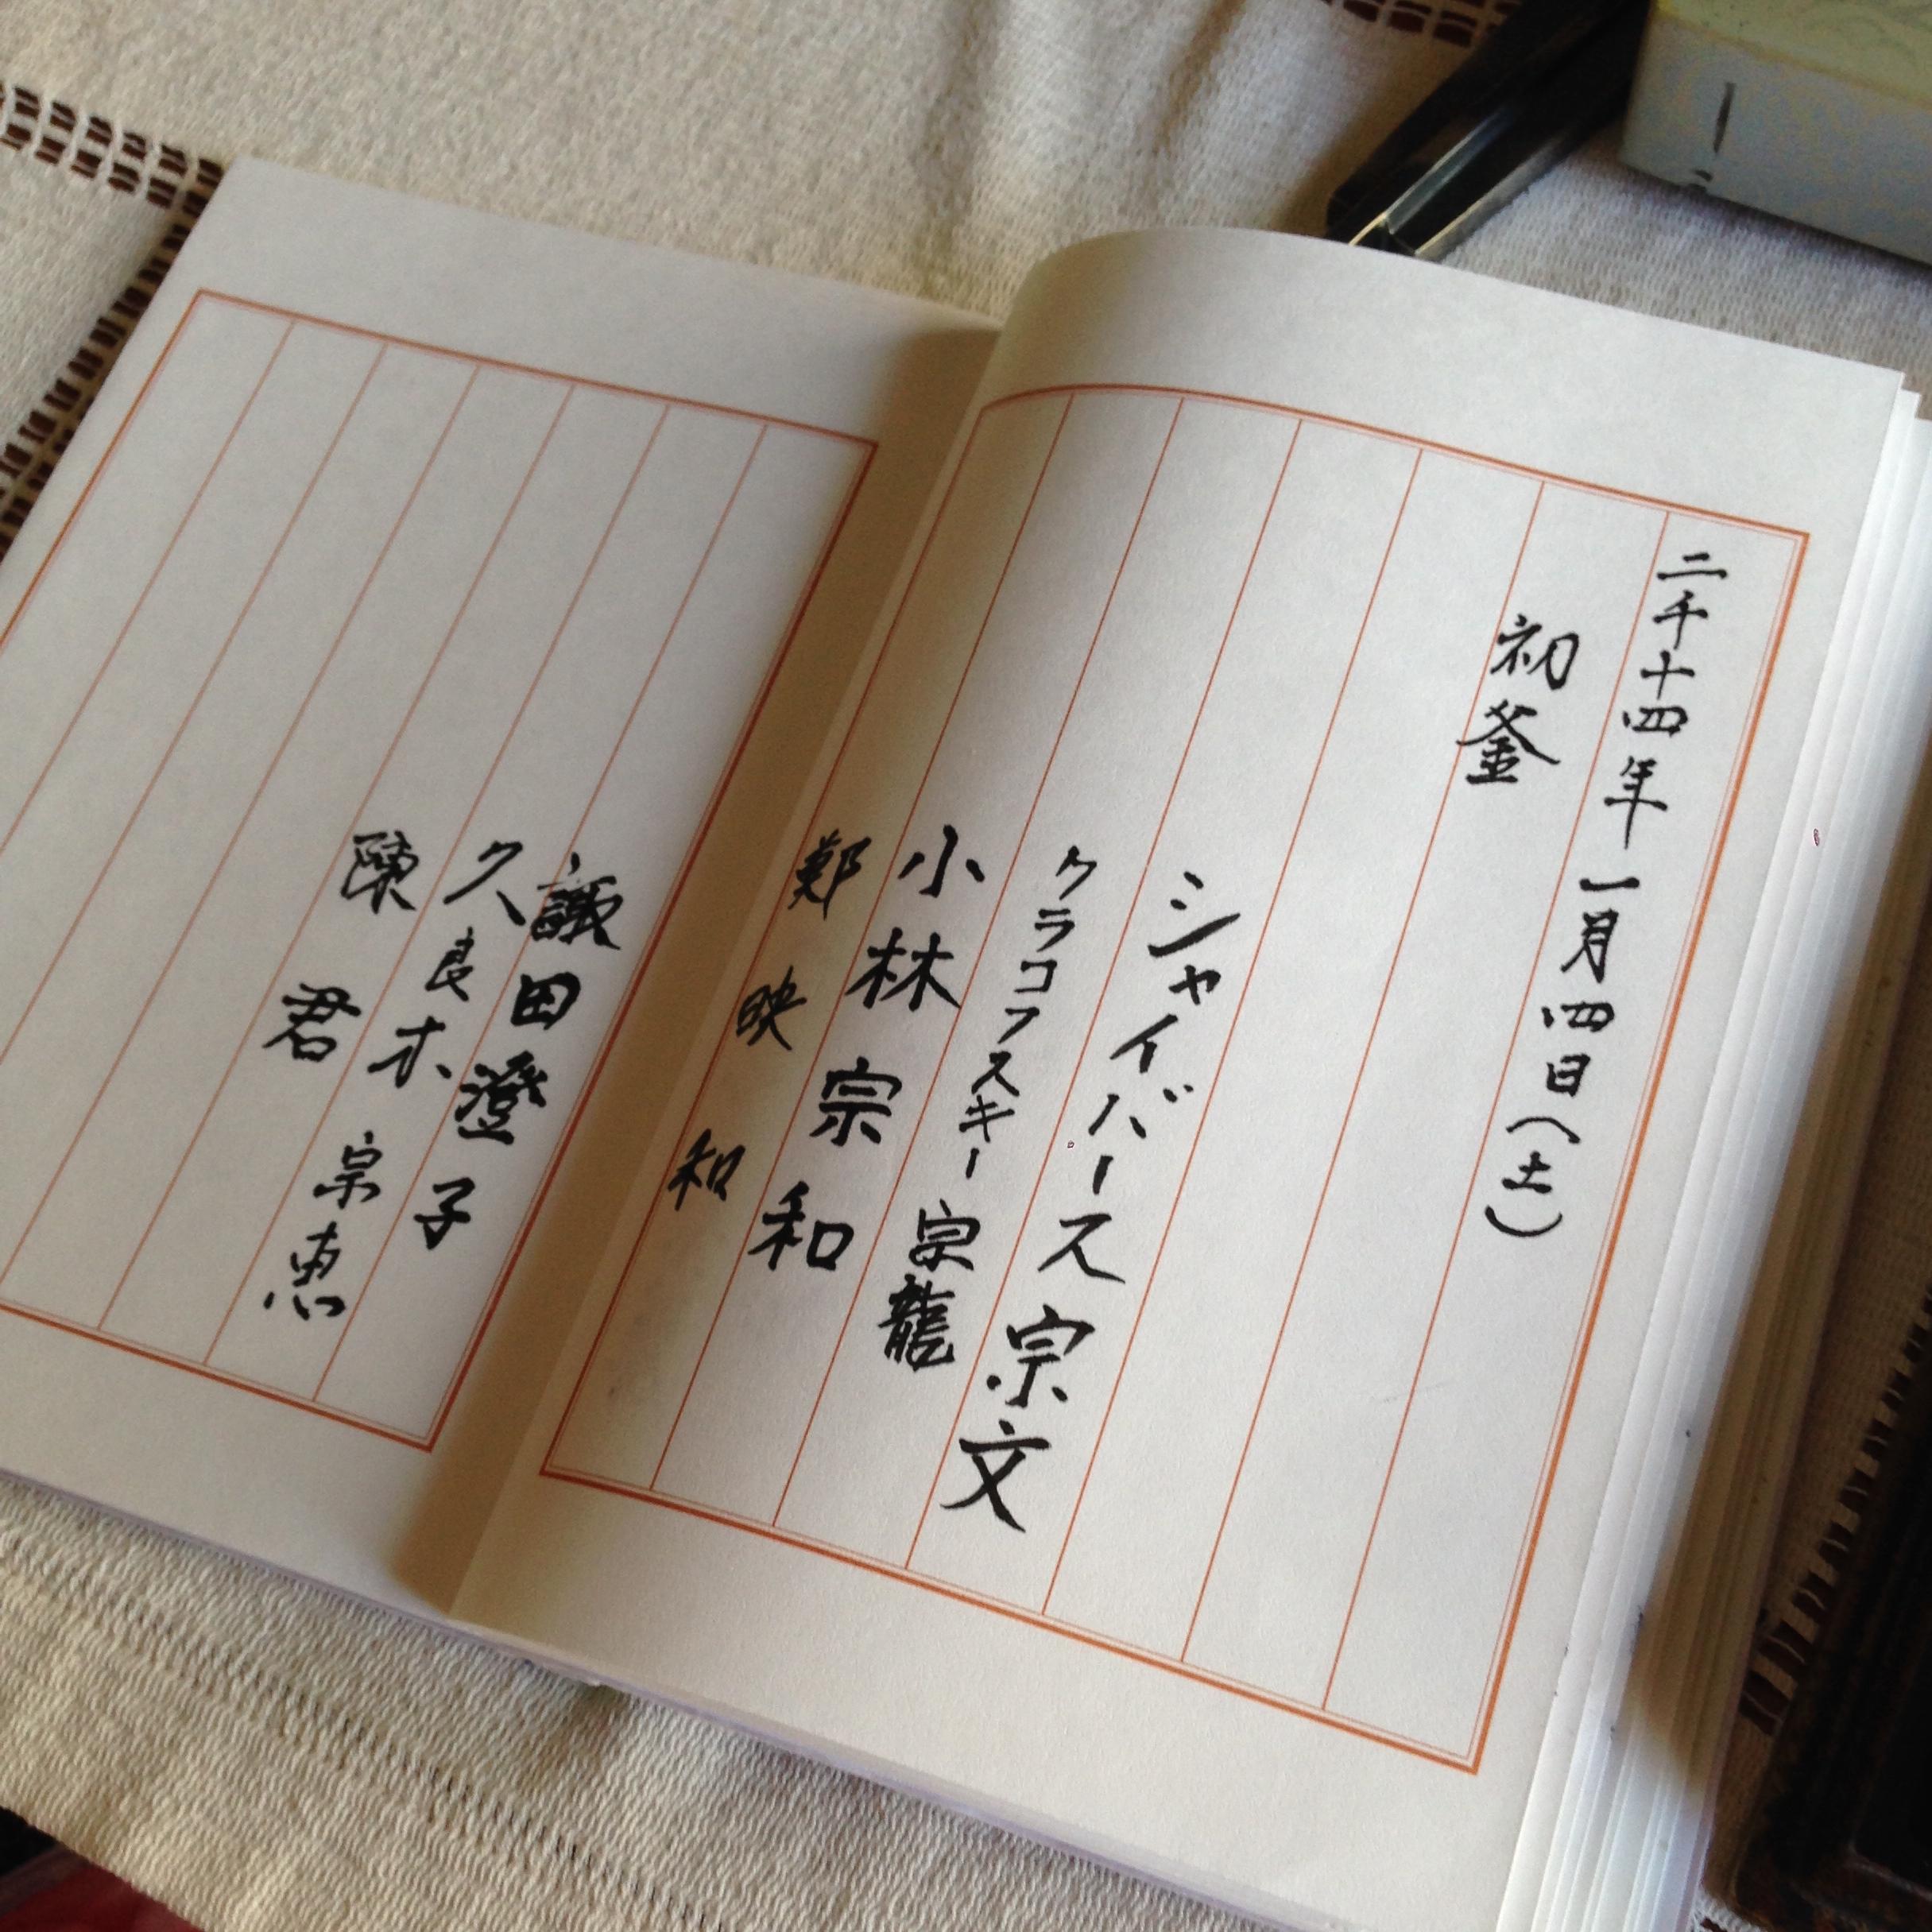 二千十四年一月四日(土)
初釜
シャイバース宗文
クラコフスキー宗龍
小林宗和
鄭映和
諏田澄子
久良木宗恵
陳君